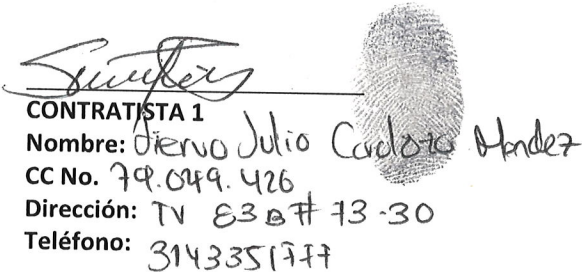 CONTRATISTA 1
Nombre: Diervo Julio Cardozo Mendez
CC No. 79.049.426
Dirección: TV 83B # 73-30
Teléfono: 3143351777